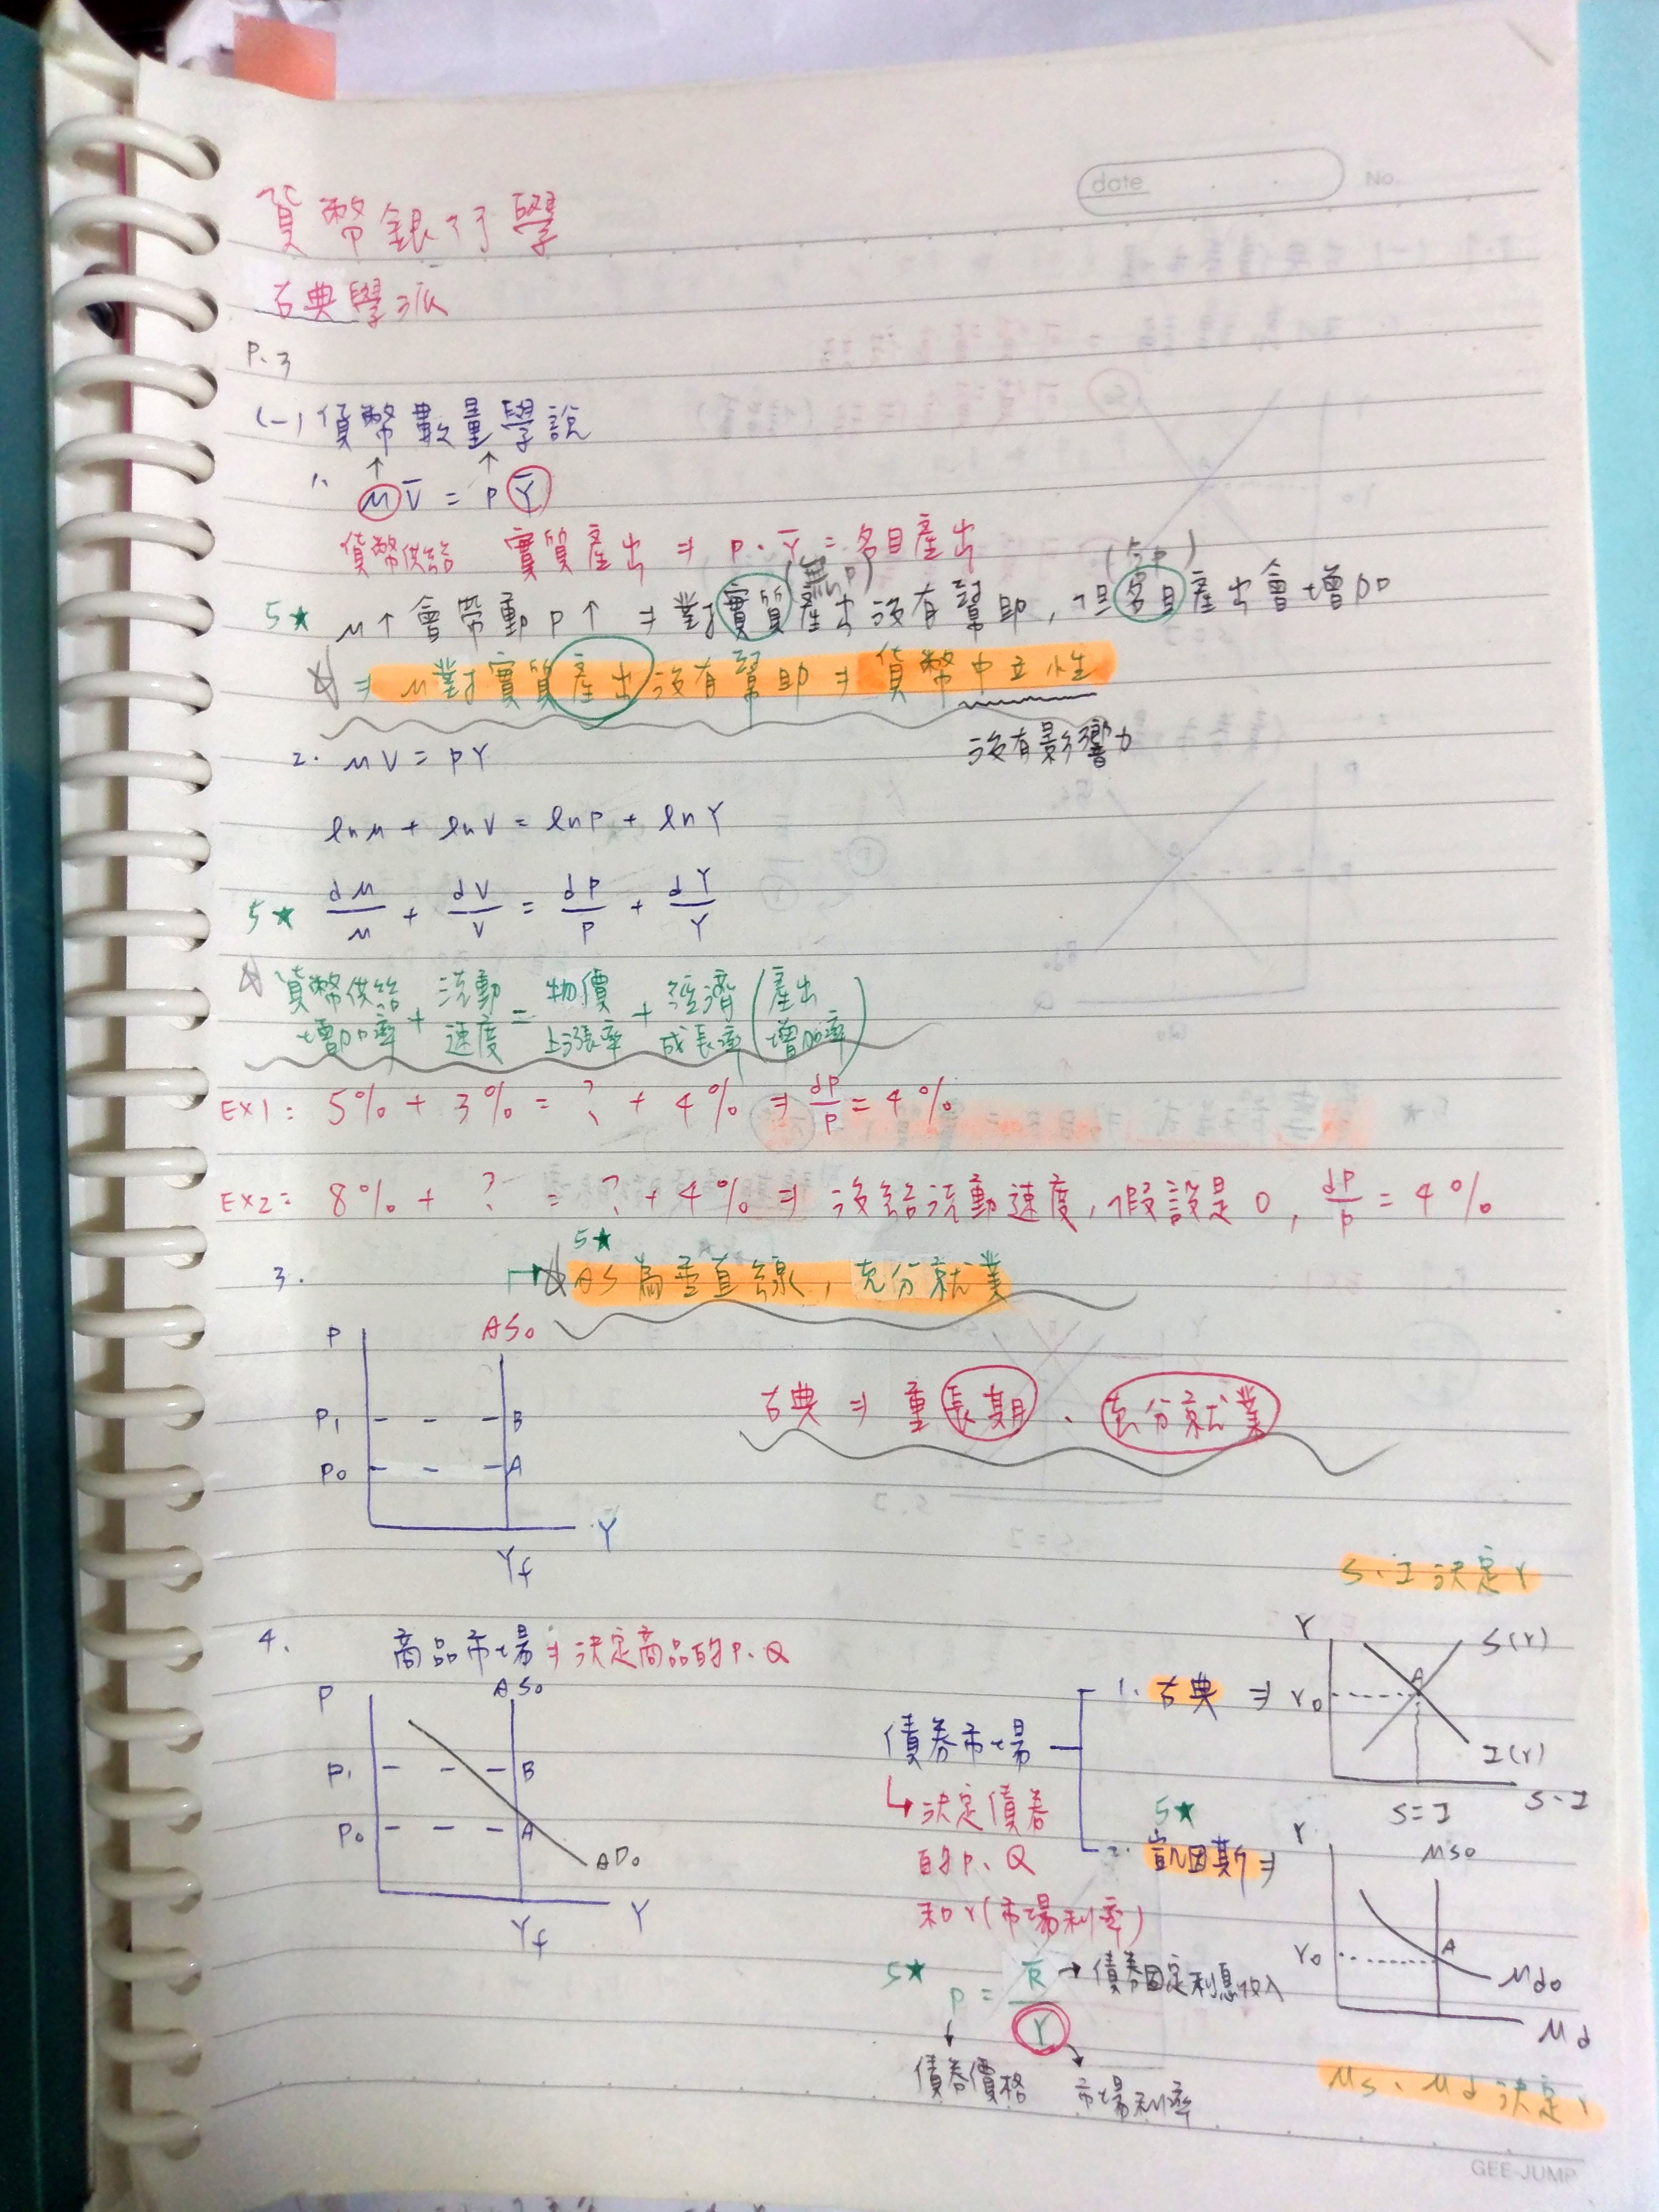 date No.
貨幣銀行學
古典學派
P.3
(一) 貨幣數量學說
↑ ↑
1. M V̅ = P Y̅
貨幣供給 實質產出 ⇒ P.Y̅ = 名目產出
(無P) (含P)
5★ M↑會帶動P↑ ⇒ 對實質產出沒有幫助, 但名目產出會增加
☆ ⇒ M對實質產出沒有幫助 ⇒ 貨幣中立性
沒有影響力
2. MV = PY
lnM + lnV = lnP + lnY
5★ dM/M + dV/V = dP/P + dY/Y
☆ 貨幣供給增加率 + 流動速度 = 物價上漲率 + 經濟成長率 (產出增加率)
EX1: 5% + 3% = ? + 4% ⇒ dP/P = 4%
EX2: 8% + ? = ? + 4% ⇒ 沒給流動速度, 假設是0, dP/P = 4%
5★
3. ☆ AS為垂直線, 充分就業
P AS₀
P₁ B
P₀ A
Y
Yf
古典 ⇒ 重長期、充分就業
4. 商品市場 ⇒ 決定商品的P、Q
P AS₀
P₁ B
P₀ A
AD₀
Y
Yf
債券市場
↳ 決定債券
的P、Q
和r(市場利率)
1. 古典 ⇒
S、I決定r
r S(r)
r₀ A
I(r)
S=I S、I
5★
2. 凱因斯 ⇒
r MS₀
r₀ A
Md₀
Md
Ms、Md決定r
5★ P = R̅/r
R̅ → 債券固定利息收入
債券價格 市場利率
GEE-JUMP